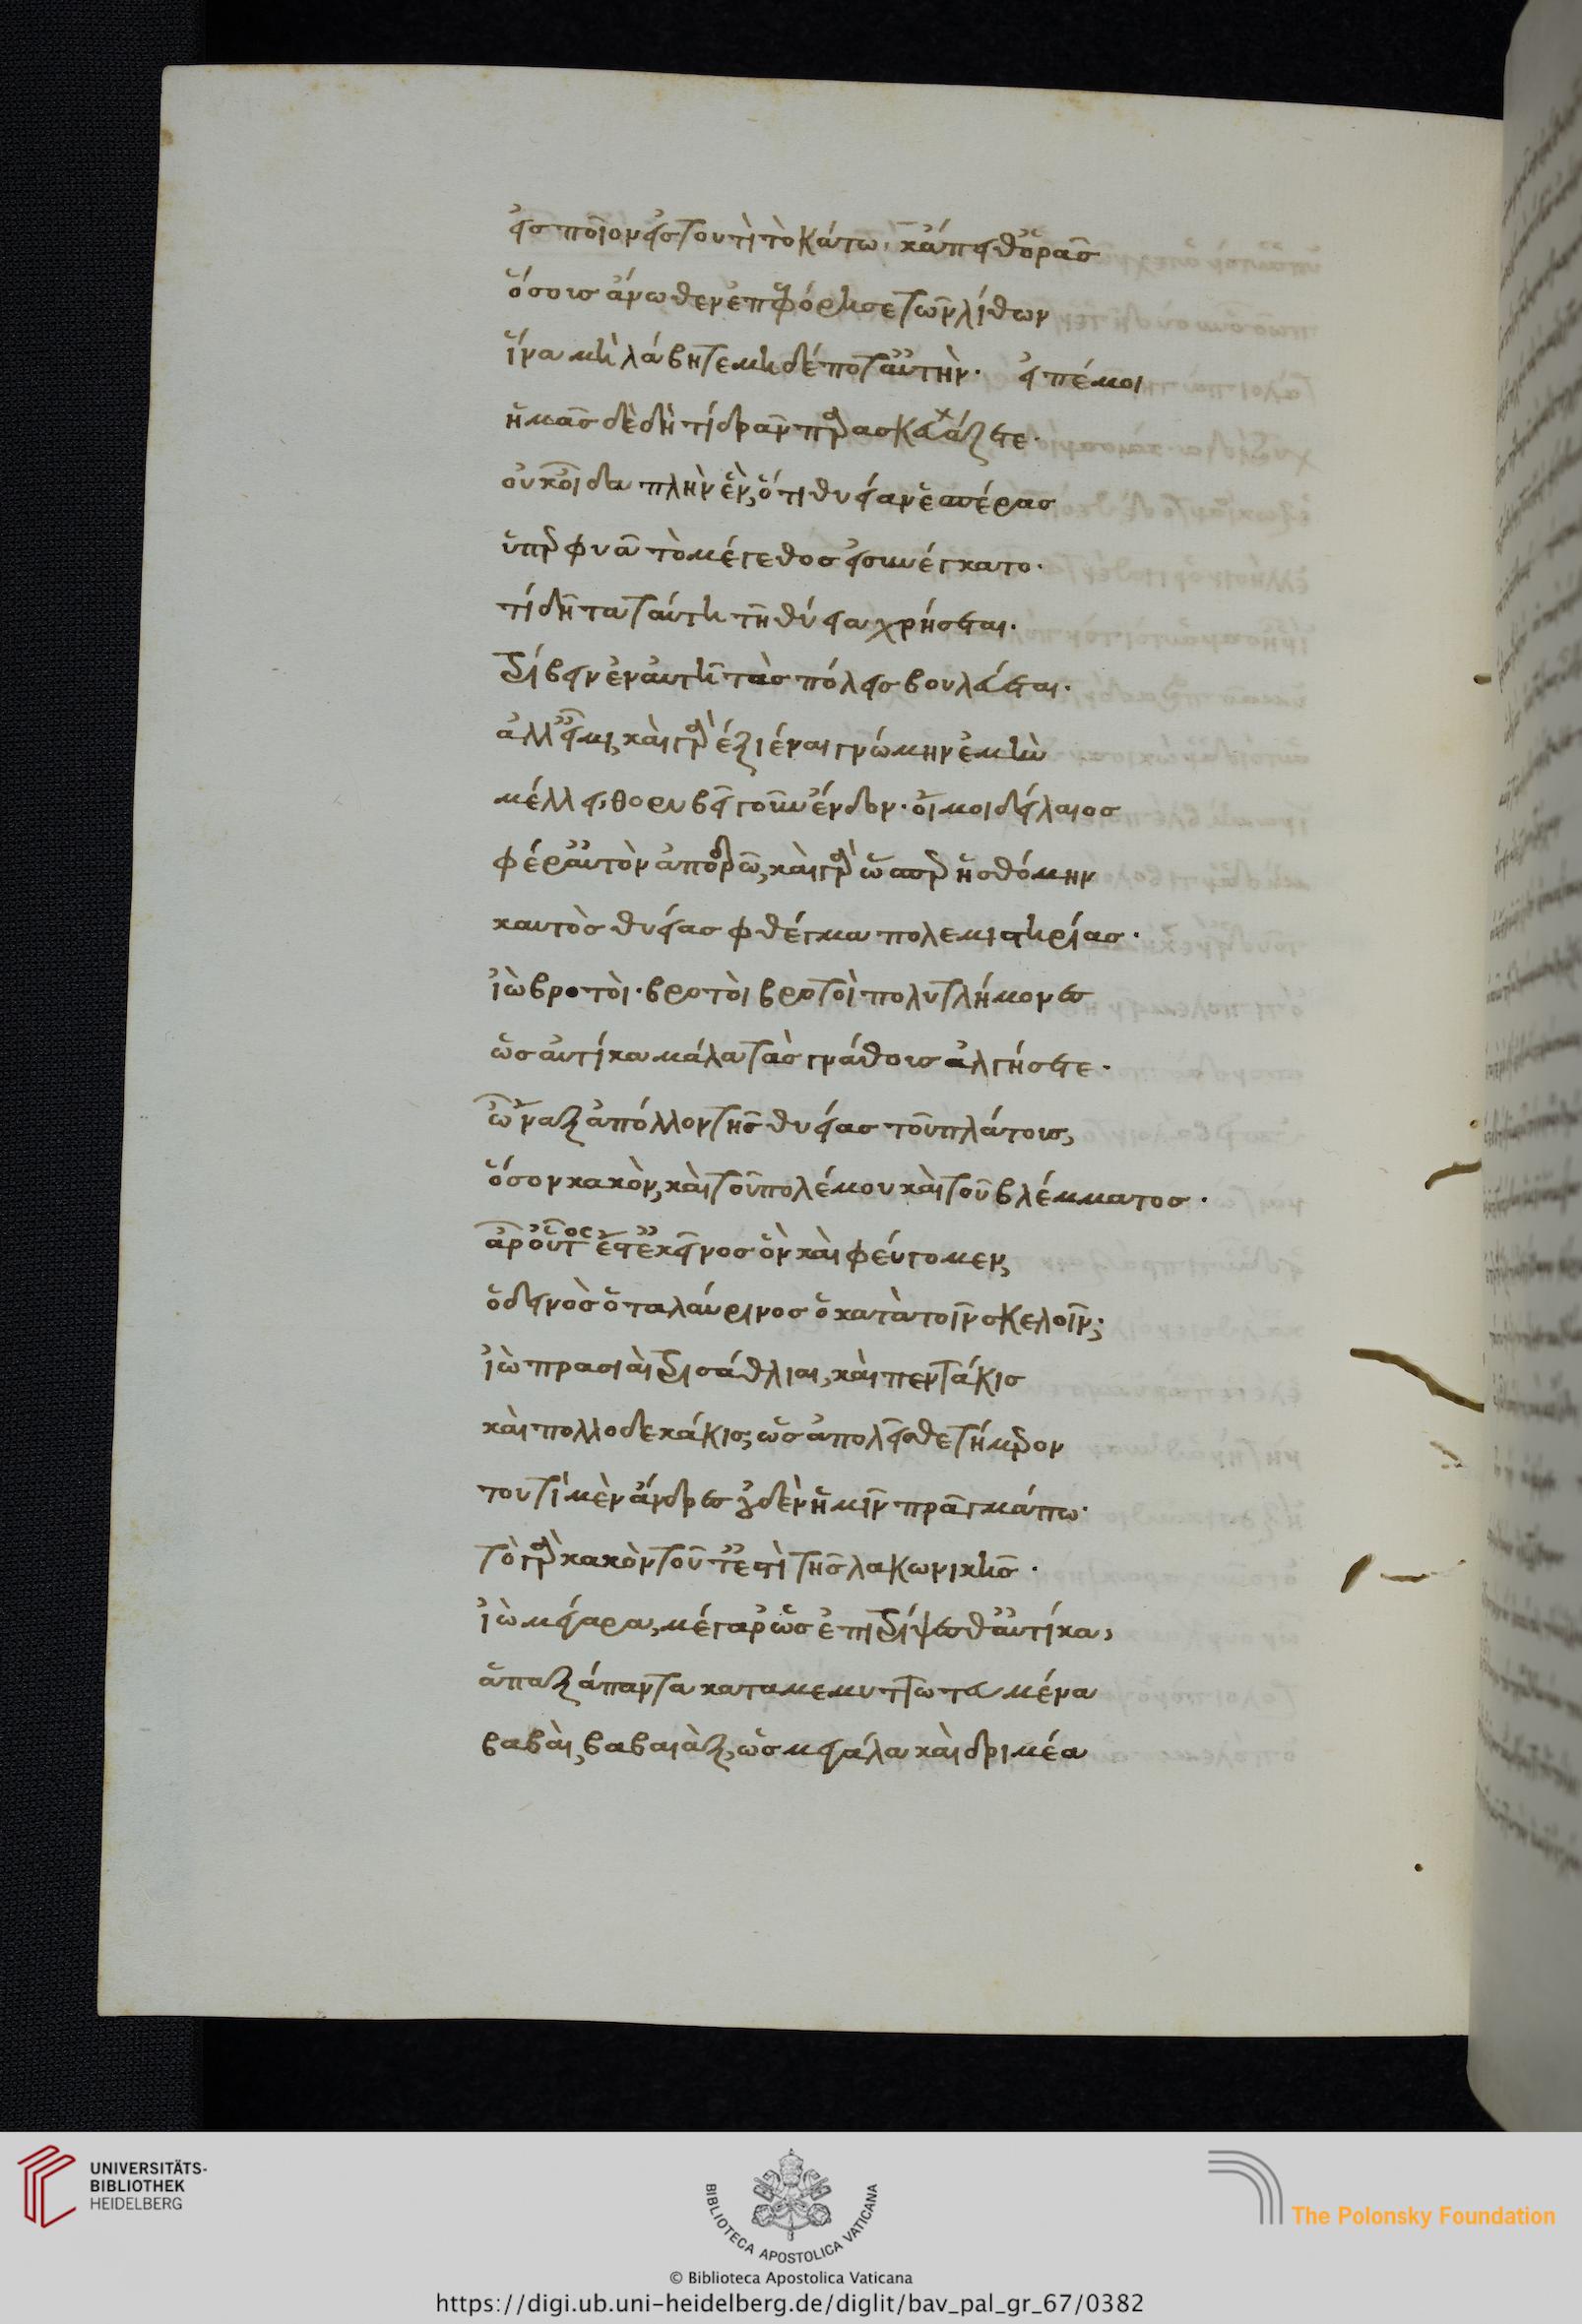 εἰς ποῖον εἰς τουτὶ τὸ κάτω· κἄπειθ' ὁρᾶς
ὅσους ἄνωθεν ἐπεφόρησε τῶν λίθων
ἵνα μὴ λάβητε μηδέποτ' αὐτήν· εἰπέ μοι
ἡμᾶς δὲ δὴ τί δρᾶν παρασκευάζεται·
οὐκ οἶδα πλὴν ἕν, ὅτι θυείαν ἑσπέρας
ὑπερφυᾶ τὸ μέγεθος εἰσηνέγκατο·
τί δῆτα ταύτῃ τῇ θυείᾳ χρήσεται·
τρίβειν ἐν αὐτῇ τὰς πόλεις βουλεύεται·
ἀλλ' εἶμι, καὶ γὰρ ἐξιέναι γνώμην ἐμὴν
μέλλει, θορυβεῖ γοῦν ἔνδον· οἴμοι δείλαιος
φέρ' αὐτὸν ἀποδρῶ, καὶ γὰρ ὥσπερ ᾐσθόμην
καυτὸς θυείας φθέγμα πολεμιστηρίας·
ἰὼ βροτοὶ· βροτοὶ βροτοὶ πολυτλήμονες
ὡς αὐτίκα μάλα τὰς γνάθους ἀλγήσετε·
ὦναξ ἄπολλον τῆς θυείας τοῦ πλάτους,
ὅσον κακὸν, καὶ τοῦ πολέμου καὶ τοῦ βλέμματος·
ἆρ' οὗτος ἔστ' ἐκεῖνος ὃν καὶ φεύγομεν,
ὁ δεινὸς ὁ ταλαύρινος ὁ κατὰ τοῖν σκελοῖν;
ἰὼ πρασιαὶ τρισάθλιαι, καὶ πεντάκις
καὶ πολλοδεκάκις, ὡς ἀπολεῖσθε τήμερον
τουτὶ μὲν ἄνδρες οὐδὲν ἡμῖν πρᾶγμά πω·
τὸ γὰρ κακὸν τοῦτ' ἐστὶ τῆς λακωνικῆς·
ἰὼ μέγαρα, μέγαρ' ὡς ἐπιτρίψεσθ' αὐτίκα,
ἅπαξ άπαντα καταμεμυττωτευμένα
βαβαὶ, βαβαιὰξ, ὡς μεγάλα καὶ δριμέα
UNIVERSITÄTS-
BIBLIOTHEK
HEIDELBERG
BIBLIOTECA APOSTOLICA VATICANA
The Polonsky Foundation
© Biblioteca Apostolica Vaticana
https://digi.ub.uni-heidelberg.de/diglit/bav_pal_gr_67/0382